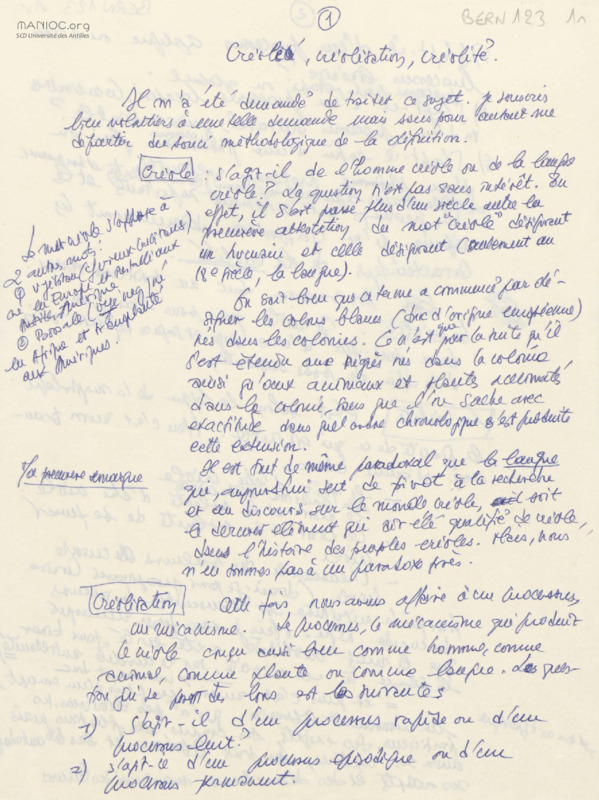 MANIOC.org
SCD Université des Antilles
BERN 123 1n
1
Créole, créolisation, créolité?
Il m'a été demandé de traiter ce sujet. Je souscris
bien volontiers à une telle demande mais sans pour autant me
départir du souci méthodologique de la définition.
Créole : s'agit-il de l'homme créole ou de la langue
créole? La question n'est pas sans intérêt. En
effet, il s'est passé plus d'un siècle entre la
première attestation du mot "créole" désignant
un humain et celle désignant (seulement au
siècle, la langue).
On sait bien que ce terme a commencé par dé-
signer les colons blancs (donc d'origine européenne)
nés dans les colonies. Ce n'est que par la suite qu'il
s'est étendu aux nègres nés dans la colonie
aussi qu'aux animaux et plantes acclimatés
dans la colonie, sans que l'on sache avec
exactitude dans quel ordre chronologique s'est produite
cette extension.
Le mot créole s'oppose à
2 autres mots:
① (vieux
né en Europe et
Amérique
② Bossale (nègre né
en Afrique et transplanté
aux Amériques.
1a première remarque
Il est tout de même paradoxal que la langue
qui, aujourd'hui sert de pivot à la recherche
et au discours sur le monde créole, soit
le dernier élément qui ait été qualifié de créole,
dans l'histoire des peuples créoles. Mais, nous
n'en sommes pas à un paradoxe près.
Créolisation Cette fois, nous avons affaire à un processus,
un mécanisme. Le processus, le mécanisme qui produit
le créole conçu aussi bien comme homme, comme
animal, comme plante ou comme langue. Les ques-
tions qui se posent dès lors est les suivantes
1) s'agit-il d'un processus rapide ou d'un
processus lent?
2) s'agit-il d'un processus épisodique ou d'un
processus permanent.